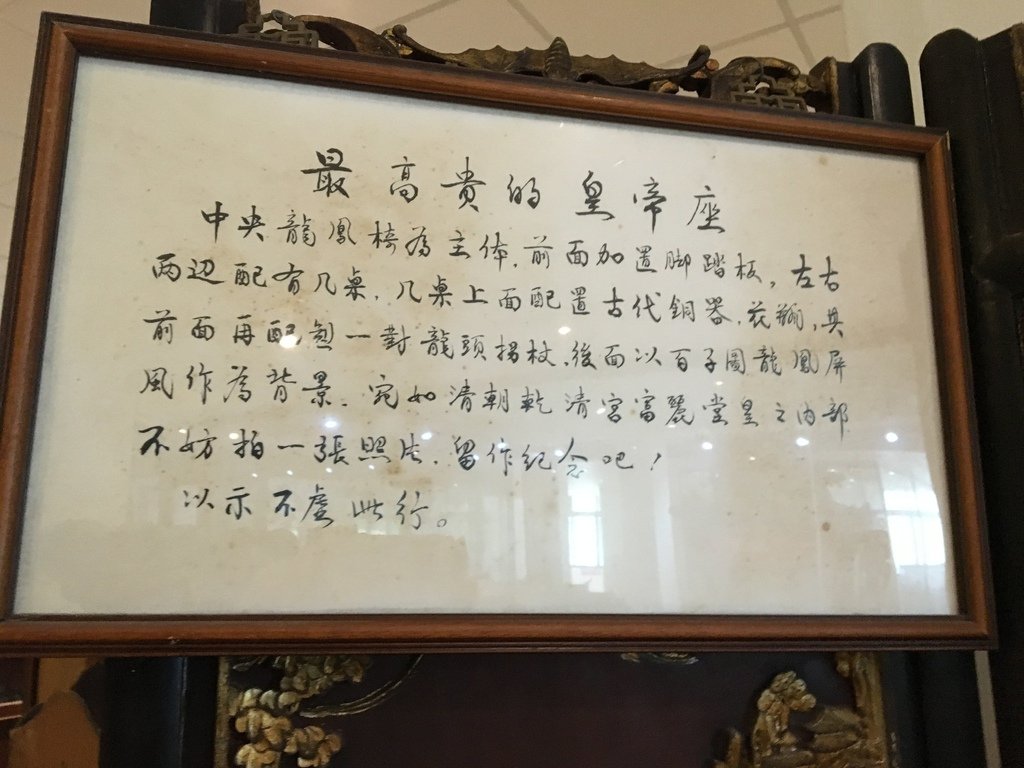 最高貴的皇帝座
中央龍鳳椅為主体，前面加置脚踏板，左右
两边配有几桌，几桌上面配置古代銅器，花瓶，其
前面再配一對龍頭拐杖，後面以百子圖龍鳳屏
風作為背景，宛如清朝乾清宮富麗堂皇之内部
不妨拍一張照片，留作紀念吧！
以示不虛此行。